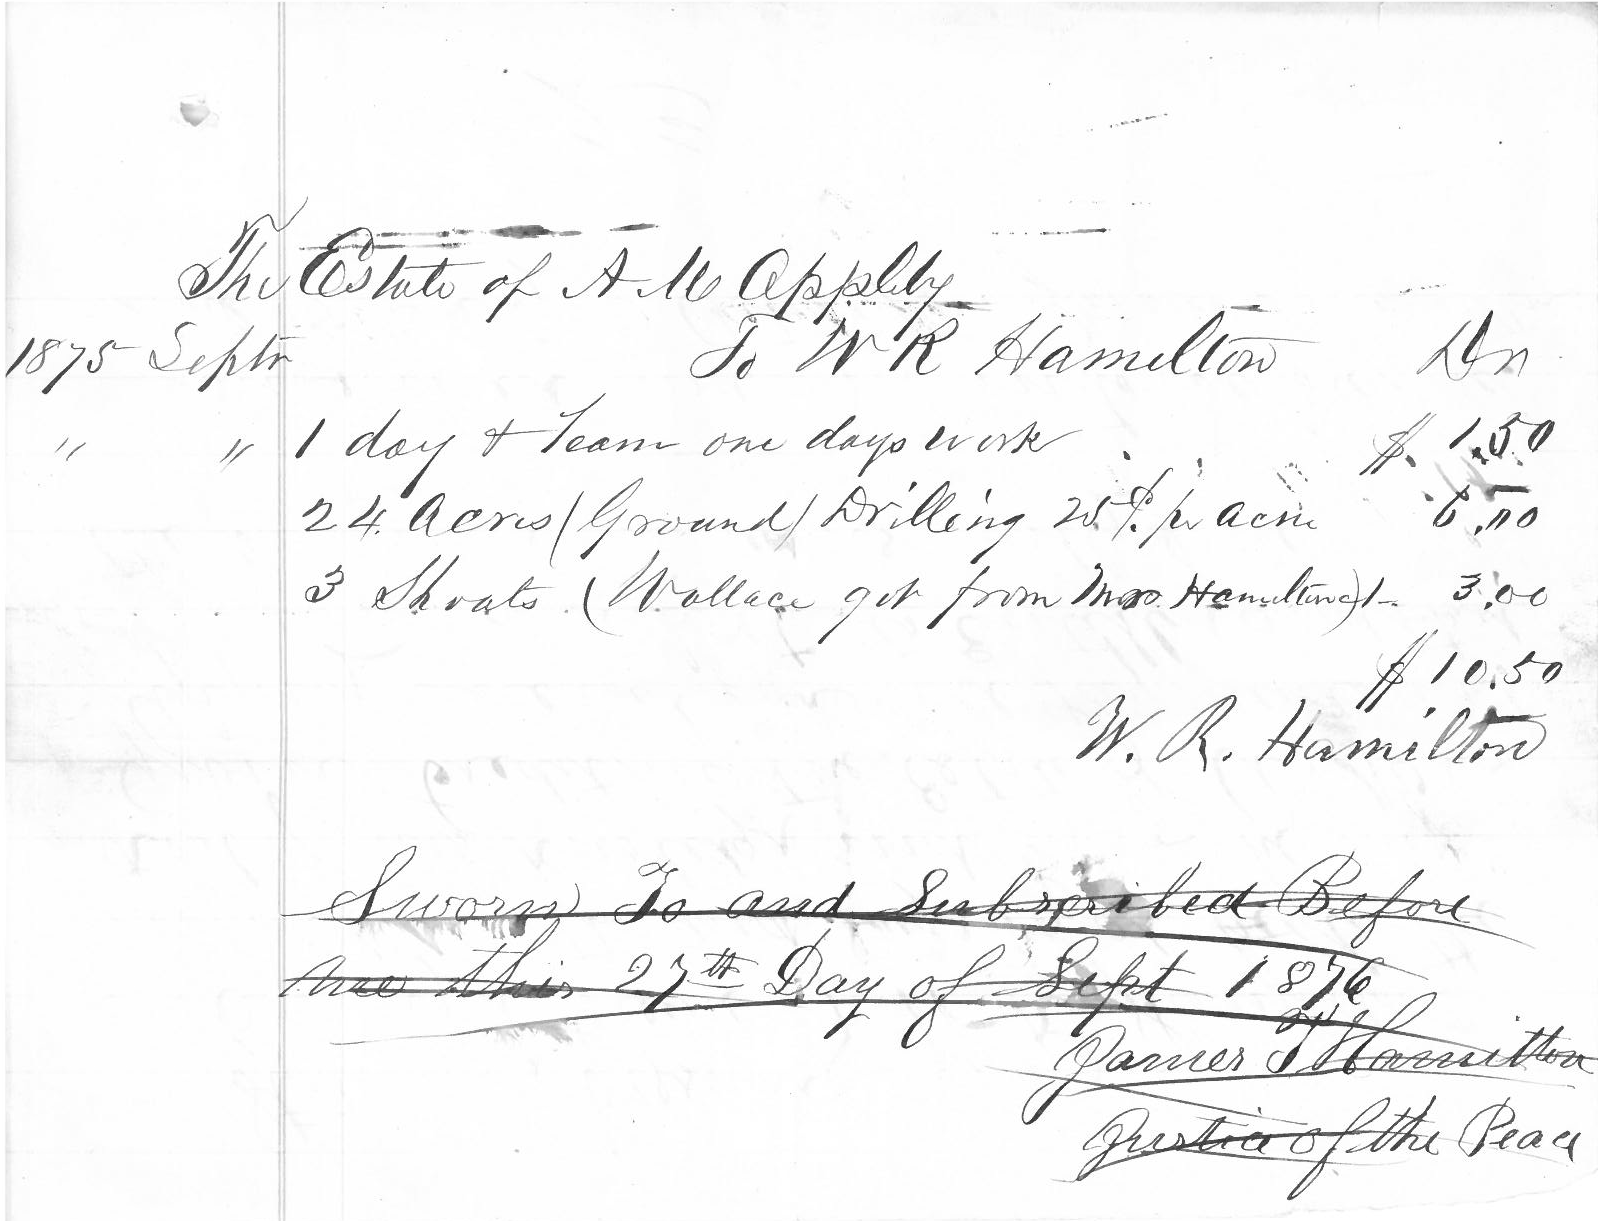 The Estate of A M Appleby
1875 Septr To W R Hamilton Dr
" " 1 day & Team one days work $ 1.50
24 Acres (Ground) Drilling 25 ¢ pr Acre 6.00
3 Shoats (Wallace got from Mrs Hamilton) 1- 3.00
$ 10.50
W. R. Hamilton
Sworn To and Subscribed Before
me this 27th Day of Sept 1876
James Hamilton
Justice of the Peace